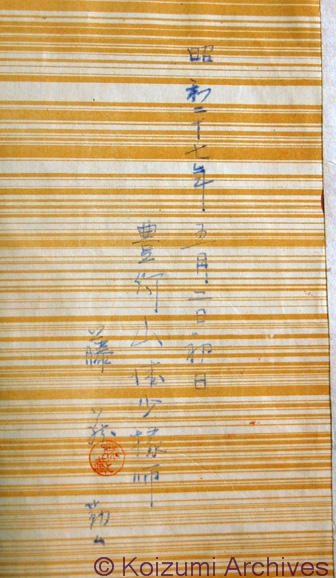 昭和二十七年五月二日初日
豊竹山城少掾師
藤
© Koizumi Archives